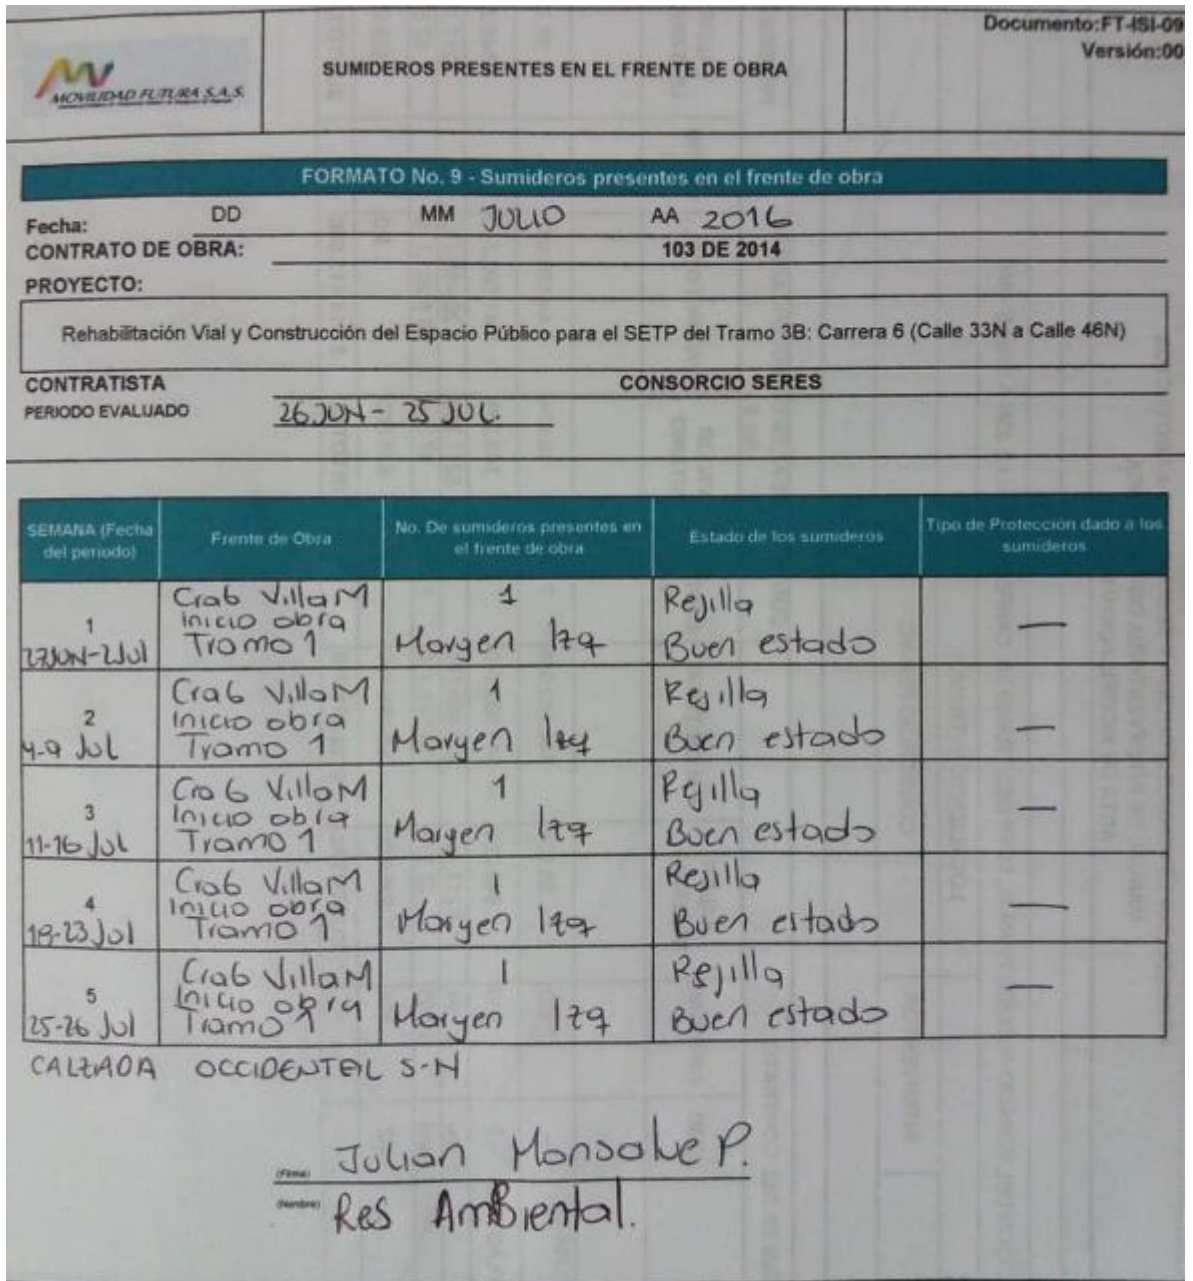 Documento:FT-ISI-09
Versión:00
MOVILIDAD FUTURA S.A.S.
SUMIDEROS PRESENTES EN EL FRENTE DE OBRA
FORMATO No. 9 - Sumideros presentes en el frente de obra
Fecha: DD MM JULIO AA 2016
CONTRATO DE OBRA: 103 DE 2014
PROYECTO:
Rehabilitación Vial y Construcción del Espacio Público para el SETP del Tramo 3B: Carrera 6 (Calle 33N a Calle 46N)
CONTRATISTA CONSORCIO SERES
PERIODO EVALUADO 26 JUN - 25 JUL.
SEMANA (Fecha del periodo)
Frente de Obra
No. De sumideros presentes en el frente de obra
Estado de los sumideros
Tipo de Protección dado a los sumideros
1
27JUN-2Jul
Cra6 VillaM
Inicio obra
Tramo 1
1
Margen Izq
Rejilla
Buen estado
—
2
4-9 Jul
Cra6 VillaM
Inicio obra
Tramo 1
1
Margen Izq
Rejilla
Buen estado
—
3
11-16 Jul
Cra 6 VillaM
Inicio obra
Tramo 1
1
Margen Izq
Rejilla
Buen estado
—
4
18-23 Jul
Cra6 VillaM
Inicio obra
Tramo 1
1
Margen Izq
Rejilla
Buen estado
—
5
25-26 Jul
Cra6 VillaM
Inicio obra
Tramo 1
1
Margen Izq
Rejilla
Buen estado
—
CALZADA OCCIDENTAL S-N
(Firma) Julian Monsalve P.
(Nombre) Res AmBiental.